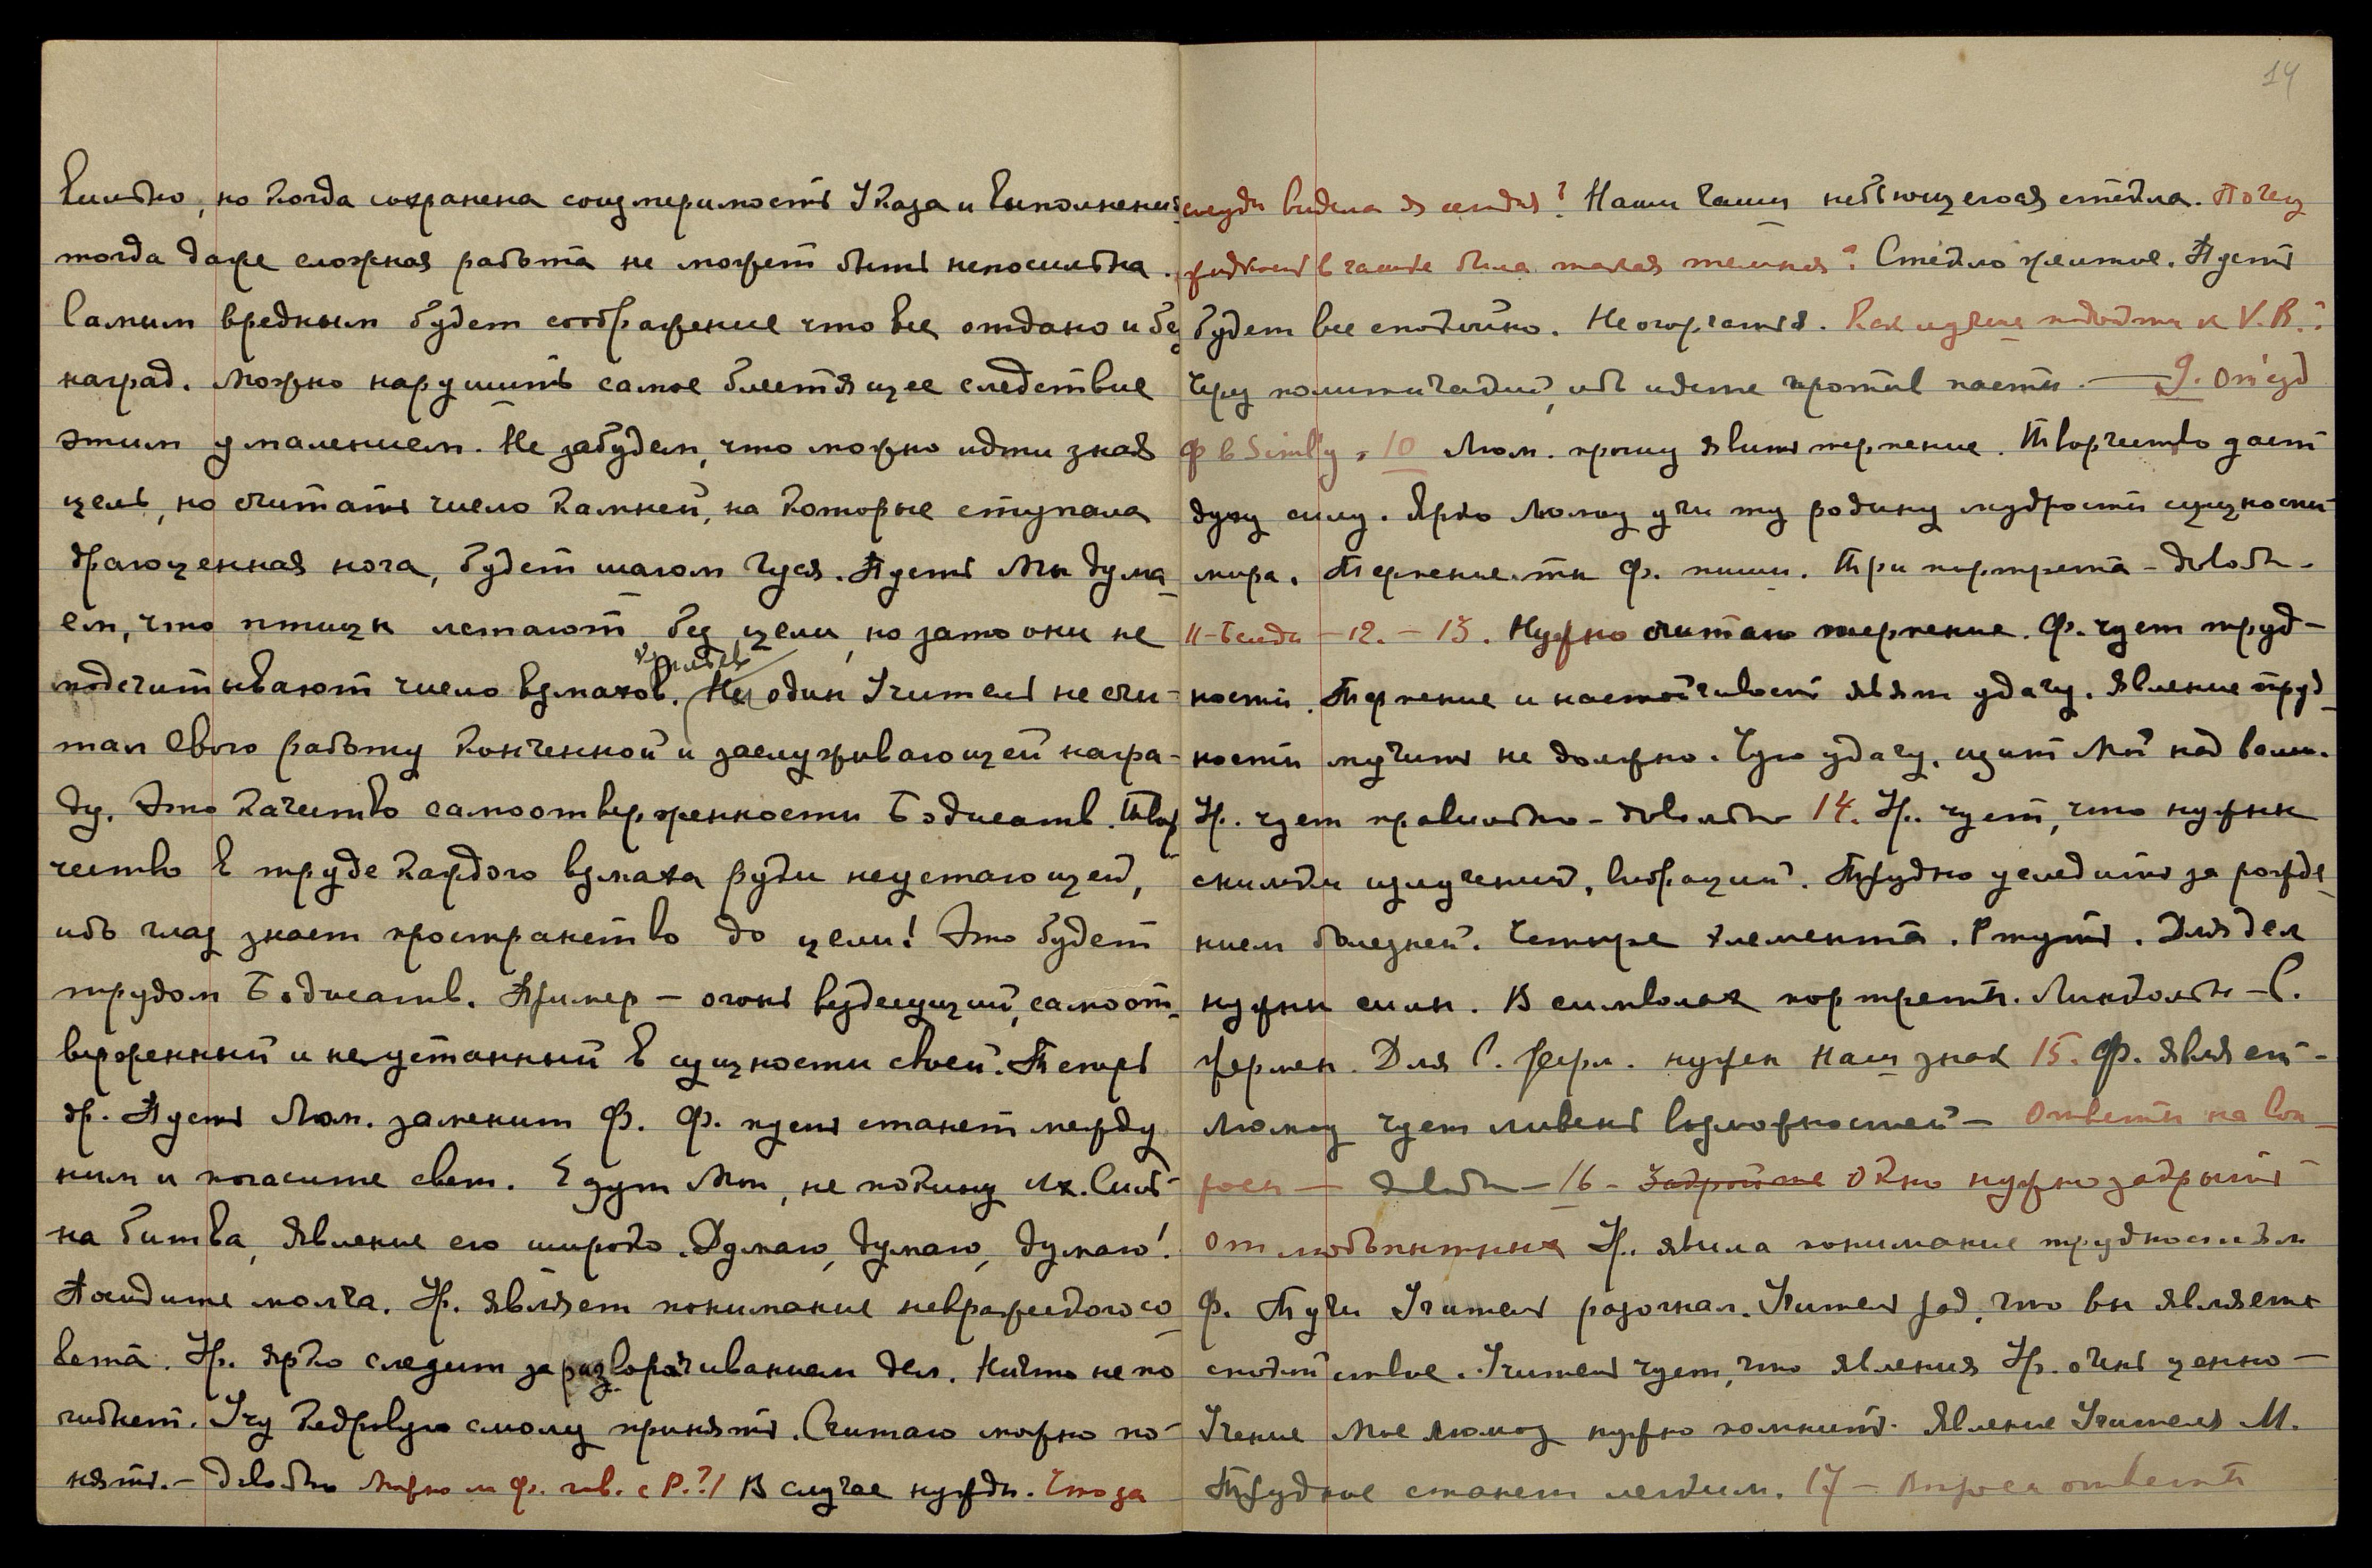 сильно, но когда сохранена соизмеримость Указа и выполнения
тогда даже сложная работа не может быть непосильна.
Самым вредным будет соображение что все отдано и без
наград. Можно нарушить самое блестящее следствие
этим умалением. Не забудем, что можно идти зная
цель, но считать число камней, на которые ступала
драгоценная нога, будет шагом гуся. Пусть Мы дума-
ем, что птицы летают без цели, но зато они не
подсчитывают число взмахов крыльев. Не один Учитель не счи-
тал Свою работу конченной и заслуживающей награ-
ду. Это качество самоотверженности Бодисатв. Твор
чество в труде каждого взмаха руки неустающей,
ибо глаз знает пространство до цели! Это будет
трудом Бодисатв. Пример – огонь вездесущий, самоот-
верженный и неустанный в сущности своей. Теперь
др. Пусть Люм. заменит Ф. Ф. пусть станет между
ним и погасите свет. Едут Мои, не покину Их. Силь-
на битва, явление его широко. Думаю, думаю, думаю!
Посидите молча. Ур. являет понимание невражеского со
вета. Ур. ярко следит за разворачиванием дел. Ничто не по
гибнет. Учу кедровую смолу принять. Считаю можно по-
нять. – Довольно Можно ли Ф. гов. с Р.?/ В случае нужды. Что за
сосуды видела я сегодня? Наши чаши небьющегося стекла. Почему
жидкость в чаше была такая темная? Стекло желтое. Пусть
будет все спокойно. Не огорчаться. Как лучше подойти к V.R.?
Через политический, ибо идете против касты. — 9. Отъезд
Ф в Simlу. 10 Люм. прошу явить терпение. Творчество дает
духу силу. Ярко Люмоу учи ту родину мудрости сущности
мира. Терпение. ты Ф. пиши. Три портрета – довольн.
11 – Беседы – 12. – 13. Нужно считаю терпение. Ф. чует труд-
ности. Терпение и настойчивость явят удачу. Явление труд
ности мучить не должно. Чую удачу, щит Мой над вами.
Ур. чует правильно – довольно 14. Ур. чует, что нужны
снимки излучений, вибраций. Трудно уследить за рожде-
нием болезней. Четыре элемента. Ртуть. Для дел
нужны силы. В символах портреты. Линкольн – С.
Жермен. Для С. Жерм. нужен Наш знак 15. Ф. являет –
Люмоу чует ливень возможностей – Ответы на воп-
росы — Довольно – 16 – Закройте Окно нужно закрыть
от любопытных Ур. явила понимание трудностям
Ф. Тучи Учитель разогнал. Учитель рад, что вы являете
спокойствие. Учитель чует, что явления Ур. очень ценно –
Учение Мое Люмоу нужно помнить. Явление Учителя М.
Трудное станет легким. 17 – Вопросы ответы